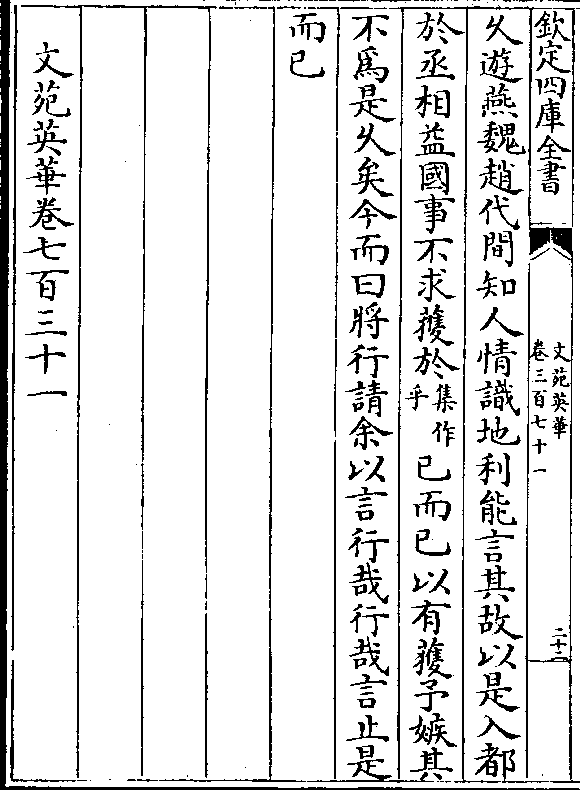 欽定四庫全書
文苑英華
卷三百七十一
二十二
久遊燕魏趙代間知人情識地利能言其故以是入都
於丞相益國事不求獲於集作乎已而已以有獲予嫉其
不爲是久矣今而曰將行請余以言行哉行哉言止是
而已
文苑英華卷七百三十一